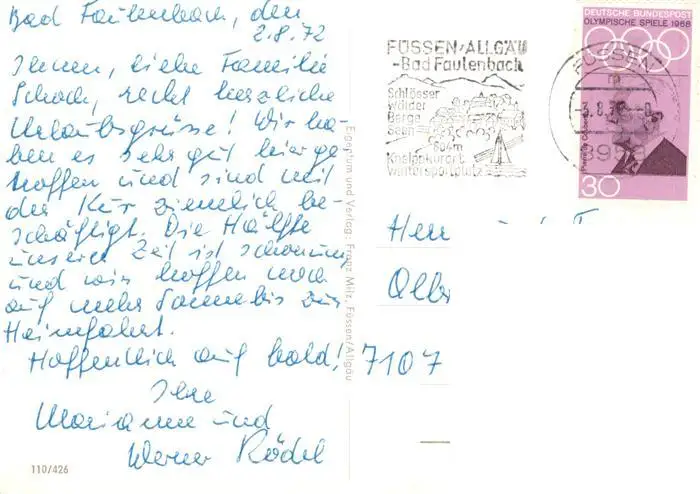 Bad Faulenbach, den
2.8.72
Ihnen, liebe Familie
Schoch, recht herzliche
Urlaubsgrüsse! Wir ha-
ben es sehr gut hier ge-
troffen und sind mit
der Kur ziemlich be-
schäftigt. Die Hälfte
unserer Zeit ist schon um
und wir hoffen noch
auf mehr Sonne bis zur
Heimfahrt.
Hoffentlich auf bald!
Ihre
Marianne und
Werner Rödel
110/426
Eigentum und Verlag: Franz Milz, Füssen/Allgäu
FÜSSEN/ALLGÄU
-Bad Faulenbach
Schlösser
Wälder
Berge
Seen
804m
Kneippkurort
Wintersportplatz
FÜSSEN
3.8.
8958
DEUTSCHE BUNDESPOST
OLYMPISCHE SPIELE 1968
30
Herr
7107